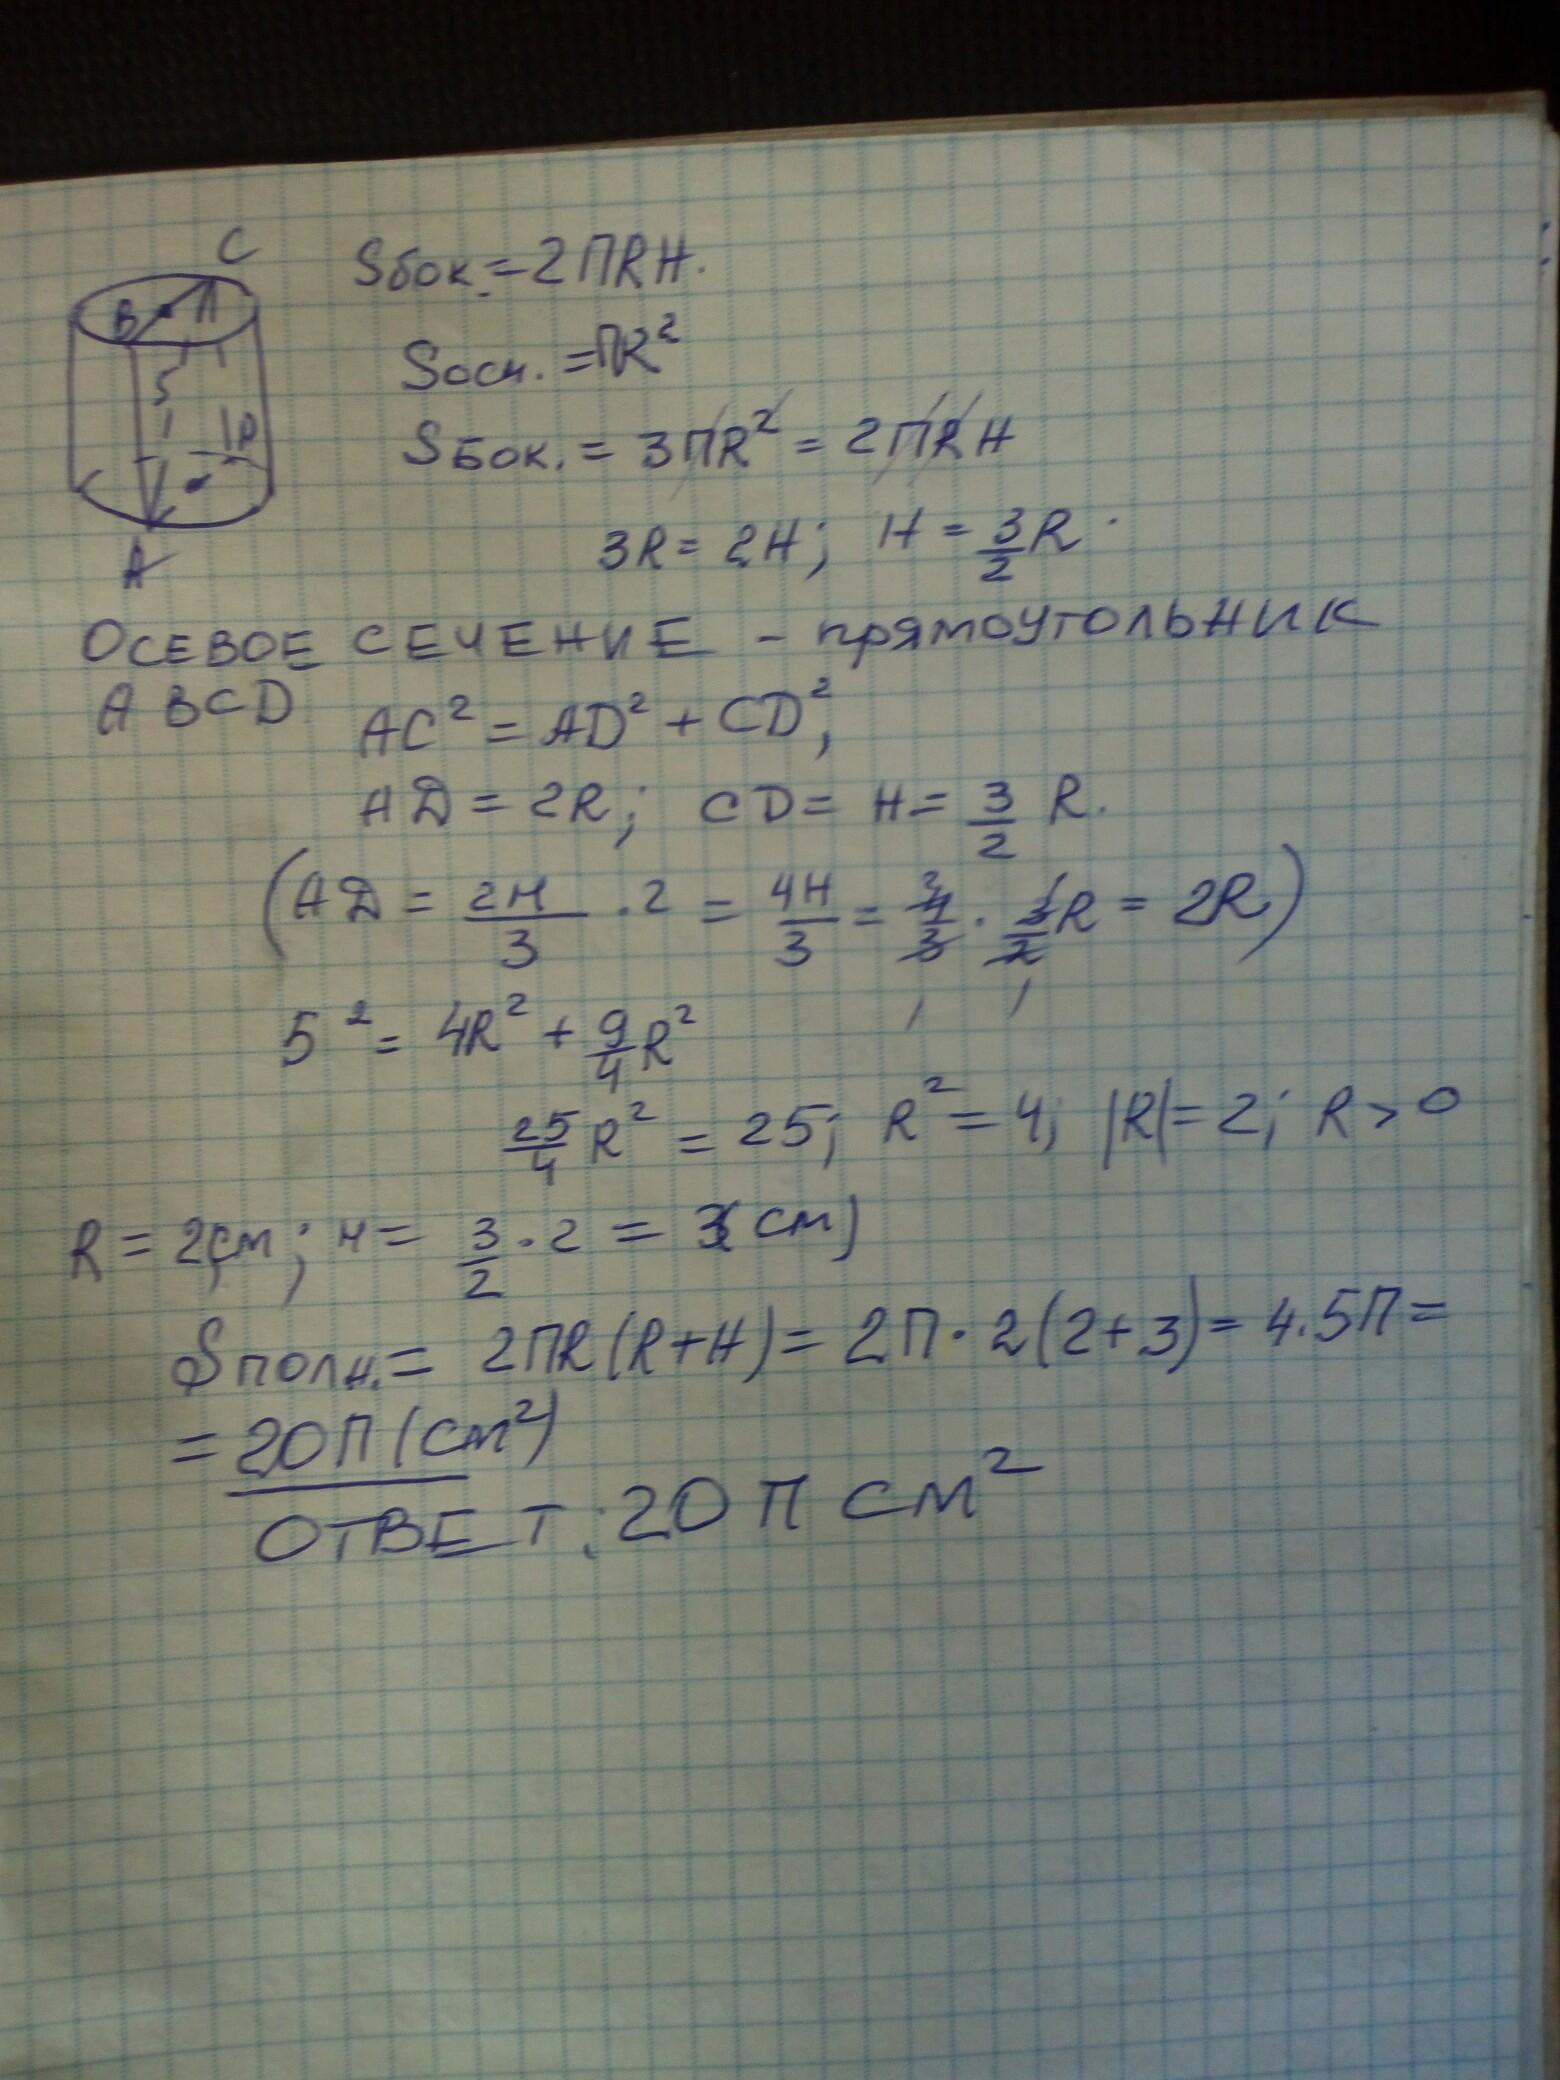 C
B
5
D
A
Sбок. = 2ПRH.
Sосн. = ПR²
Sбок. = 3ПR² = 2ПRH
3R = 2H; H = 3/2 R.
ОСЕВОЕ СЕЧЕНИЕ - прямоугольник
ABCD AC² = AD² + CD²,
AD = 2R; CD = H = 3/2 R.
(AD = 2H/3 · 2 = 4H/3 = 4/3 · 3/2 R = 2R)
5² = 4R² + 9/4 R²
25/4 R² = 25; R² = 4; |R| = 2; R > 0
R = 2см; H = 3/2 · 2 = 3(см)
Sполн. = 2ПR(R+H) = 2П·2(2+3) = 4·5П =
= 20П(см²)
ОТВЕТ: 20П см²